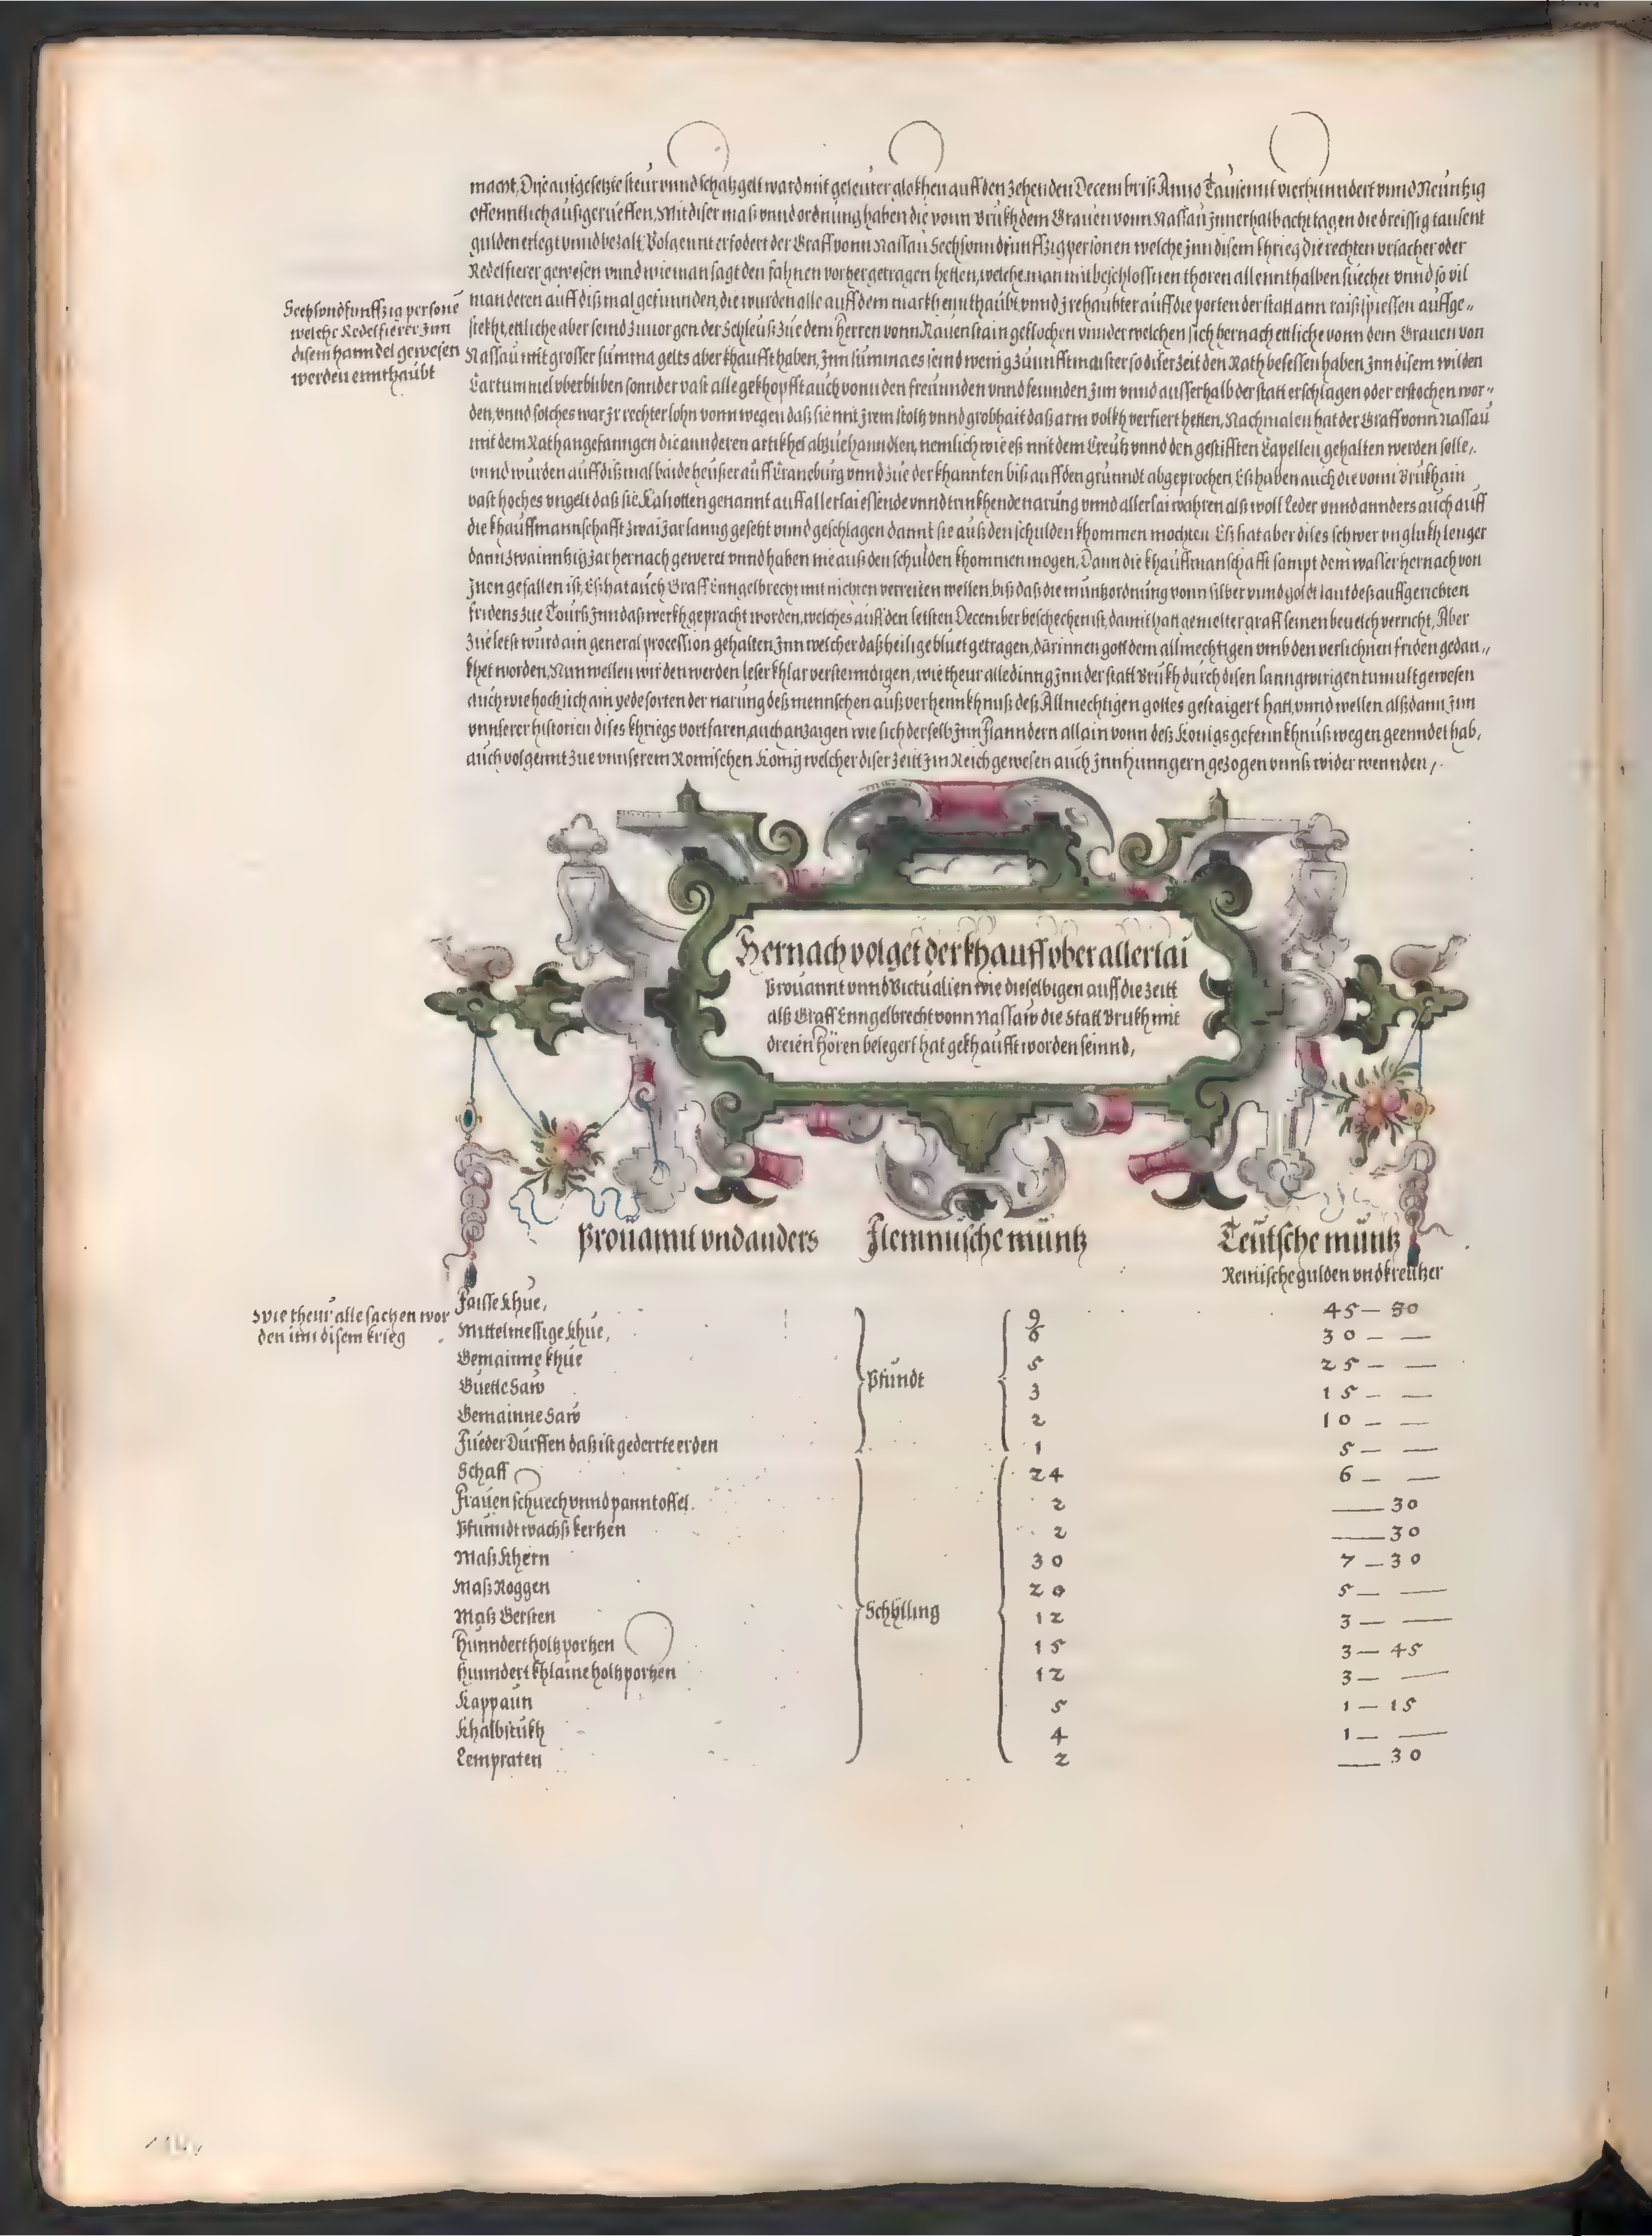 macht, Dije aufgesetzte steur vnnd schatzgelt ward mit geleuter glokhen auff den zehenden Decembris Anno Tausennt vierhunndert vnnd Neuntzig
offenntlich ausgerueffen, Mit diser maß vnnd ordnung haben die vonn Brukh dem Grauen vonn Nassau jnnerhalb acht tagen die dreissig tausent
gulden erlegt vnnd bezalt, Volgennt erfodert der Graff vonn Nassau Sechsvnndfunffzig personen welche jnn disem khrieg die rechten vrsacher oder
Redelfierer gewesen vnnd wie man sagt den fahnen vorher getragen hetten, welche man mit beschlossnen thoren allennthalben suechet vnnd so vil
Sechsvndfunffzig persone
welche Redelfierer jnn
disem hanndel gewesen
werden ennthaubt
man deren auff diß mal gefunnden, die wurden alle auff dem markh ennthaubt, vnnd jre haubter auff die porten der statt ann raißspiessen auffge-
stekht, ettliche aber seind zuuor gen der Schleuß zue dem herren vonn Rauenstain geflochen vnnder welchen sich hernach ettliche vonn dem Grauen von
Nassau mit grosser summa gelts aber khaufft haben, jnn summa es seind wenig zunnfftmaister so diser zeit den Rath besessen haben, jnn disem wilden
Lartummel vberbliben sonnder vast alle gekhopfft auch vonn den freunnden vnnd feunden jnn vnnd ausserhalb der statt erschlagen oder erstochen wor-
den, vnnd solches war jr rechter lohn vonn wegen daß sie mit jrem stoltz vnnd grobhait daß arm volkh verfiert hetten, Nachmalen hat der Graff vonn Nassau
mit dem Rath angefanngen die annderen artikhel abzuehanndlen, nemlich wie eß mit dem Creutz vnnd den gestifften Capellen gehalten werden solle,
vnnd wurden auff diß mal baide heusser auff Craneburg vnnd zue der khannten biß auff den grunndt abgeprochen, Eß haben auch die vonn Brukh ain
vast hoches vngelt daß sie Kaliotten genannt auff allerlai essende vnnd trinkhende narung vnnd allerlai wahren alß woll Leder vnnd annders auch auff
die khauffmannschafft zwai jar lanng gesetzt vnnd geschlagen dannt sie auß den schulden khommen mochten Eß hat aber dises schwer vnglukh lenger
dann zwainntzig jar hernach geweret vnnd haben nie auß den schulden khommen mogen, Dann die khauffmanschafft sampt dem wasser hernach von
jnen gefallen ist, Eß hat auch Graff Enngelbrecht mit nichten verreiten wellen, biß daß die muntzordnung vonn silber vnnd goldt laut deß auffgerichten
fridens zue Tourß jnn daß werkh gepracht worden, welches auff den letsten December beschechen ist, damit hatt gemelter graff seinen beuelch verricht, Aber
zue letst wurd ain general procession gehalten, jnn welcher daß heilige bluet getragen, darinnen gott dem allmechtigen vmb den verlichnen friden gedan-
khet worden, Nun wellen wir den werden leser khlar verstenndigen, wie theur alle dinng jnn der statt Brukh durch disen lanngwirigen tumult gewesen
auch wie hoch sich ain yede sorten der narung deß mennschen auß verhennkhnuß deß Allmechtigen gottes gestaigert hatt, vnnd wellen alßdann jnn
vnnserer historien dises khriegs vortfaren, auch anzaigen wie sich derselb jnn Flanndern allain vonn deß Königs gefennkhnuß wegen geenndet hab,
auch volgennt zue vnnserem Romischen König welcher diser zeitt jm Reich gewesen auch jnn hunngern gezogen vnnß wider wennden,
Hernach volget der khauff vber allerlai
Prouannt vnnd Victualien wie dieselbigen auff die zeitt
alß Graff Enngelbrecht vonn Nassaw die Statt Brukh mit
dreien hören belegert hat gekhaufft worden seinnd,
Prouannt vnd anders Flemnische müntz Teütsche müntz
Reinische gulden vnd kreutzer
wie theur alle sachen wor
den inn disem krieg
Faisse khue, 9 45 — 30
Mittelmessige khue, 6 30 — —
Gemainne khue 5 25 — —
Pfundt
Guette Saw 3 15 — —
Gemainne Saw 2 10 — —
Fueder Durffen daß ist gederrte erden 1 5 — —
Schaff 24 6 — —
Frauen schuech vnnd panntoffel 2 — 30
Pfunndt wachß kertzen 2 — 30
Maß Khern 30 7 — 30
Maß Roggen 20 5 — —
Schylling
Maß Gersten 12 3 — —
Hunndert holtzportzen 15 3 — 45
Hunndert khlaine holtzportzen 12 3 — —
Kappaun 5 1 — 15
Khalbstukh 4 1 — —
Lempraten 2 — 30